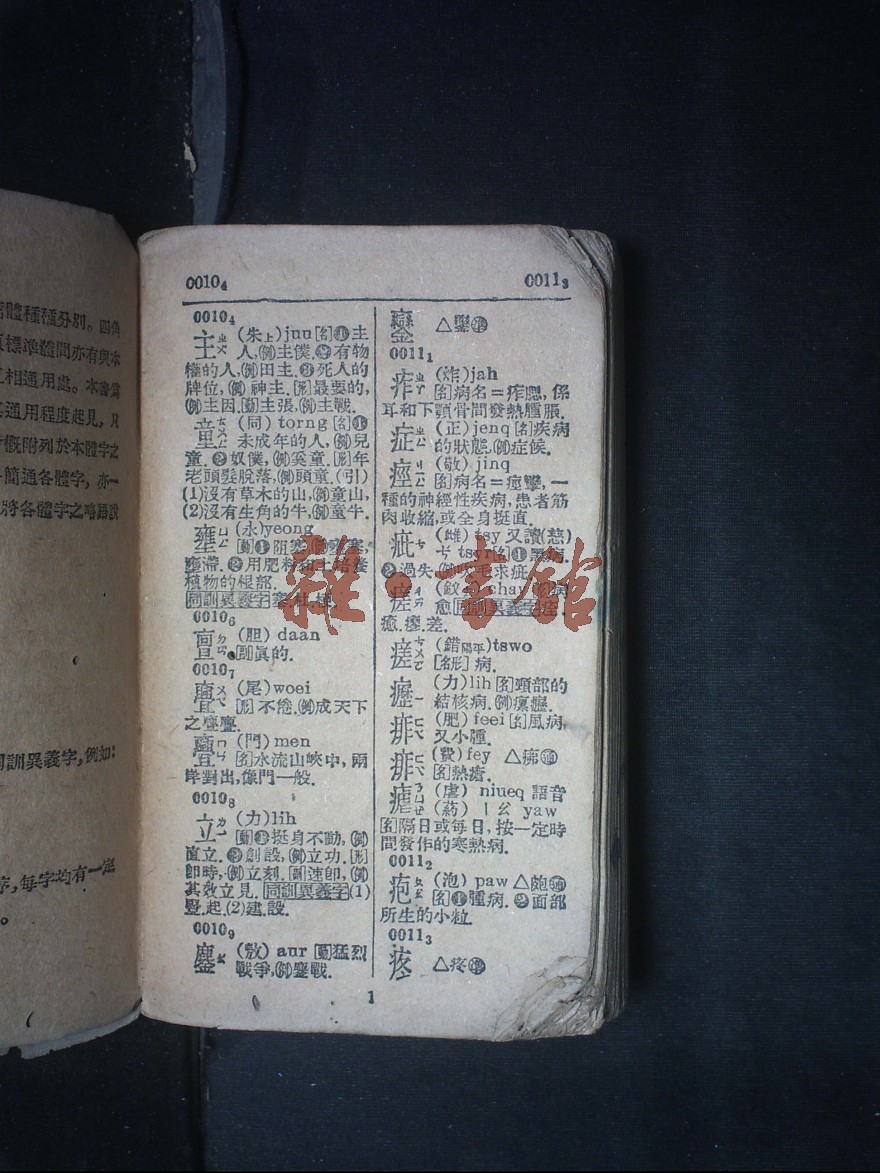 體種種分別。四角
標準體間亦有與本
互相通用處。本書
通用程度起見,凡
概附列於本體字之
簡通各體字,亦一
將各體字之略語說
同訓異義字,例如:
序,每字均有一定
。
0010₄
0011₃
0010₄
主 ㄓㄨ (朱上)juu[名]❶主
人,(例)主僕.❷有物
權的人,(例)田主.❸死人的
牌位,(例)神主.[形]最要的,
(例)主因.[動]主張,(例)主戰.
童 (同)torng[名]❶
未成年的人,(例)兒
童.❷奴僕,(例)奚童.[形]年
老頭髮脫落,(例)頭童.(引)
(1)沒有草木的山,(例)童山,
(2)沒有生角的牛,(例)童牛.
壅 (永)yeong
[動]❶阻塞,
壅滯.❷用肥料和土培養
植物的根部.
同訓異義字
0010₆
亶 ㄉㄢ (胆)daan
[副]眞的.
0010₇
亹 (尾)woei
[形]不倦,(例)成天下
之亹亹.
亹 (門)men
[名]水流山峽中,兩
岸對出,像門一般.
0010₈
立 ㄌㄧ (力)lih
[動]❶挺身不動,(例)
直立.❷創設,(例)立功.[形]
卽時,(例)立刻.[副]速卽,(例)
其效立見.同訓異義字(1)
豎.起.(2)建.設.
0010₉
鏖 ㄠ (敖)aur[動]猛烈
戰爭,(例)鏖戰.
△
0011₁
痄 ㄓㄚ (炸)jah
[名]病名=痄腮,係
耳和下顎骨間發熱腫脹.
症 ㄓㄥ (正)jenq[名]疾病
的狀態,(例)症候.
痙 (敬)jinq
[名]病名=痙攣,一
種的神經性疾病,患者筋
肉收縮,或全身挺直.
疵 ㄘ (雌)tsy又讀(慈)
ㄘ tsyr[名]❶黑病.
❷過失,(例)吹毛求疵.
瘥 chay
愈.同訓異義字痊.
癒.瘳.差.
瘥 ㄘㄨㄛ (錯陽平)tswo
[名形]病.
癧 ㄌㄧ (力)lih[名]頸部的
結核病,(例)瘰癧.
痱 ㄈㄟ (肥)feei[名]風病,
又小腫.
痱 ㄈㄟ (費)fey △疿
[名]熱瘡.
瘧 (虐)niueq語音
(葯)ㄧㄠ yaw
[名]隔日或每日,按一定時
間發作的寒熱病.
0011₂
疱 ㄆㄠ (泡)paw△皰
[名]❶腫病.❷面部
所生的小粒
0011₃
△疼
1
雜·書館